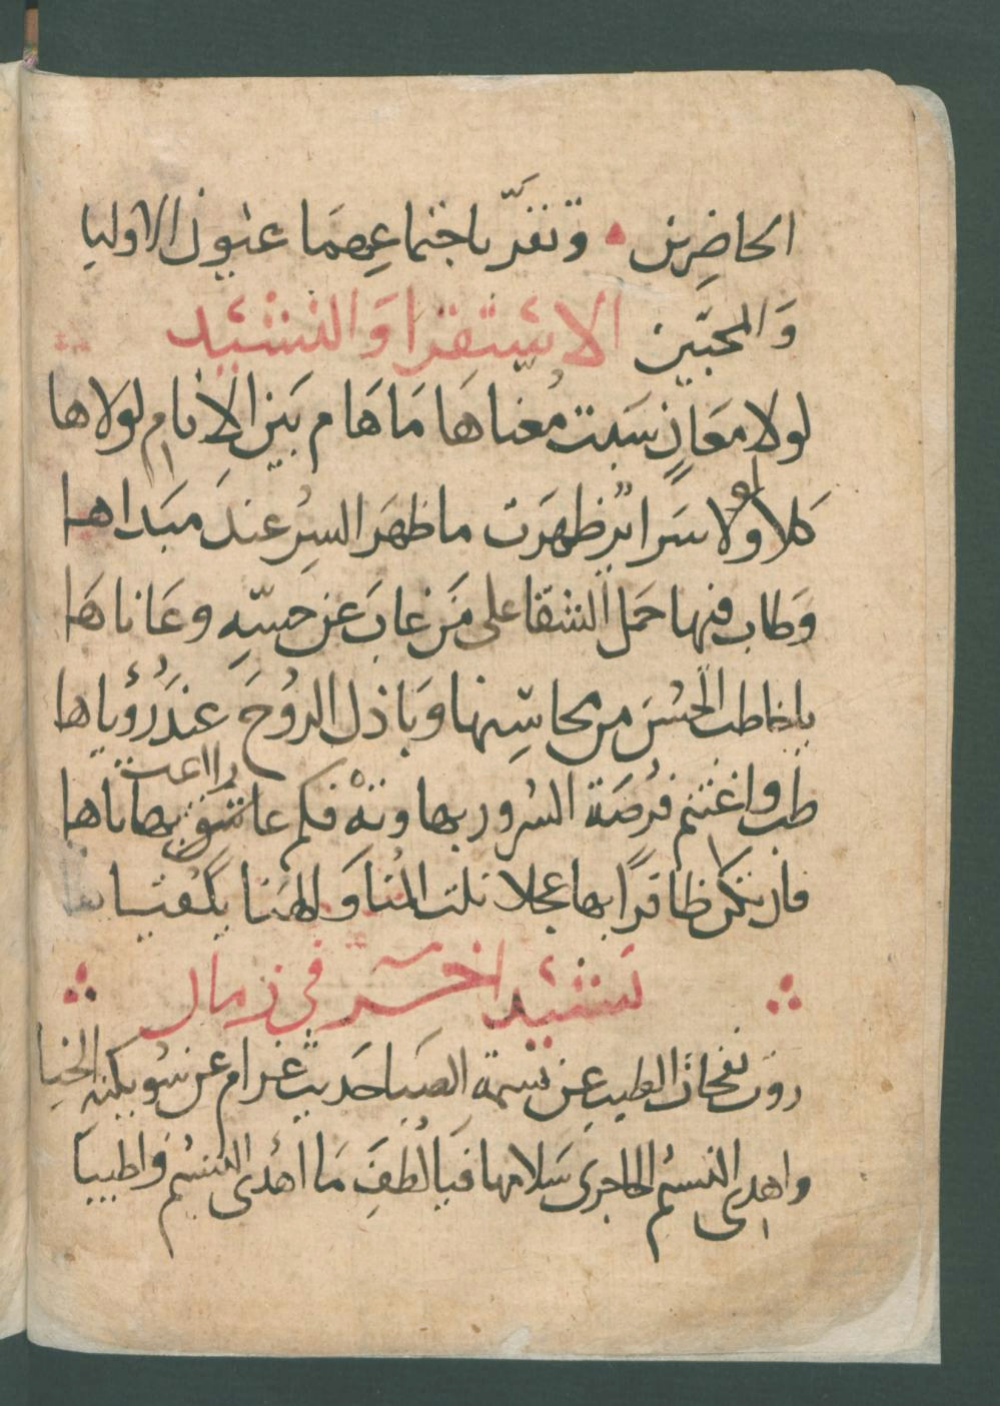 الحاضرين وتقرّ باجتماعهما عيون الاوليا
وَالمحبّين الاستقرا وَالنشيد
لولا مَعَانٍ سَبت مُعناهَا مَا هَام بَين الانام لولاها
كلا ولولا سَرائر ظهَرَت ما ظهَرَ السِرُ عندَ مبَداها
وَطاب فيها حمل الشقا على مَن غابَ عَن حسّهِ وعَاناهَا
يا خاطب الحُسنَ من محاسِنها وَباذل الروُحَ عندَ رُؤياها
طب واغتنم فرُصَة السُرور بها وتهْ فكم عاشق بها تاها
فان تكن ظافرًا بها عجلا نلت المُنا وَالهَنا بلقياها
نشيد اخر في زمال
روَت نفحات الطيب عن نسمة الصَبا حَديث غرام عن سُويكنة الخبا
واهدى النسيُم الحاجرى سَلامها فيَا لُطفَ مَا اهُدى النسيُم واطيبَا